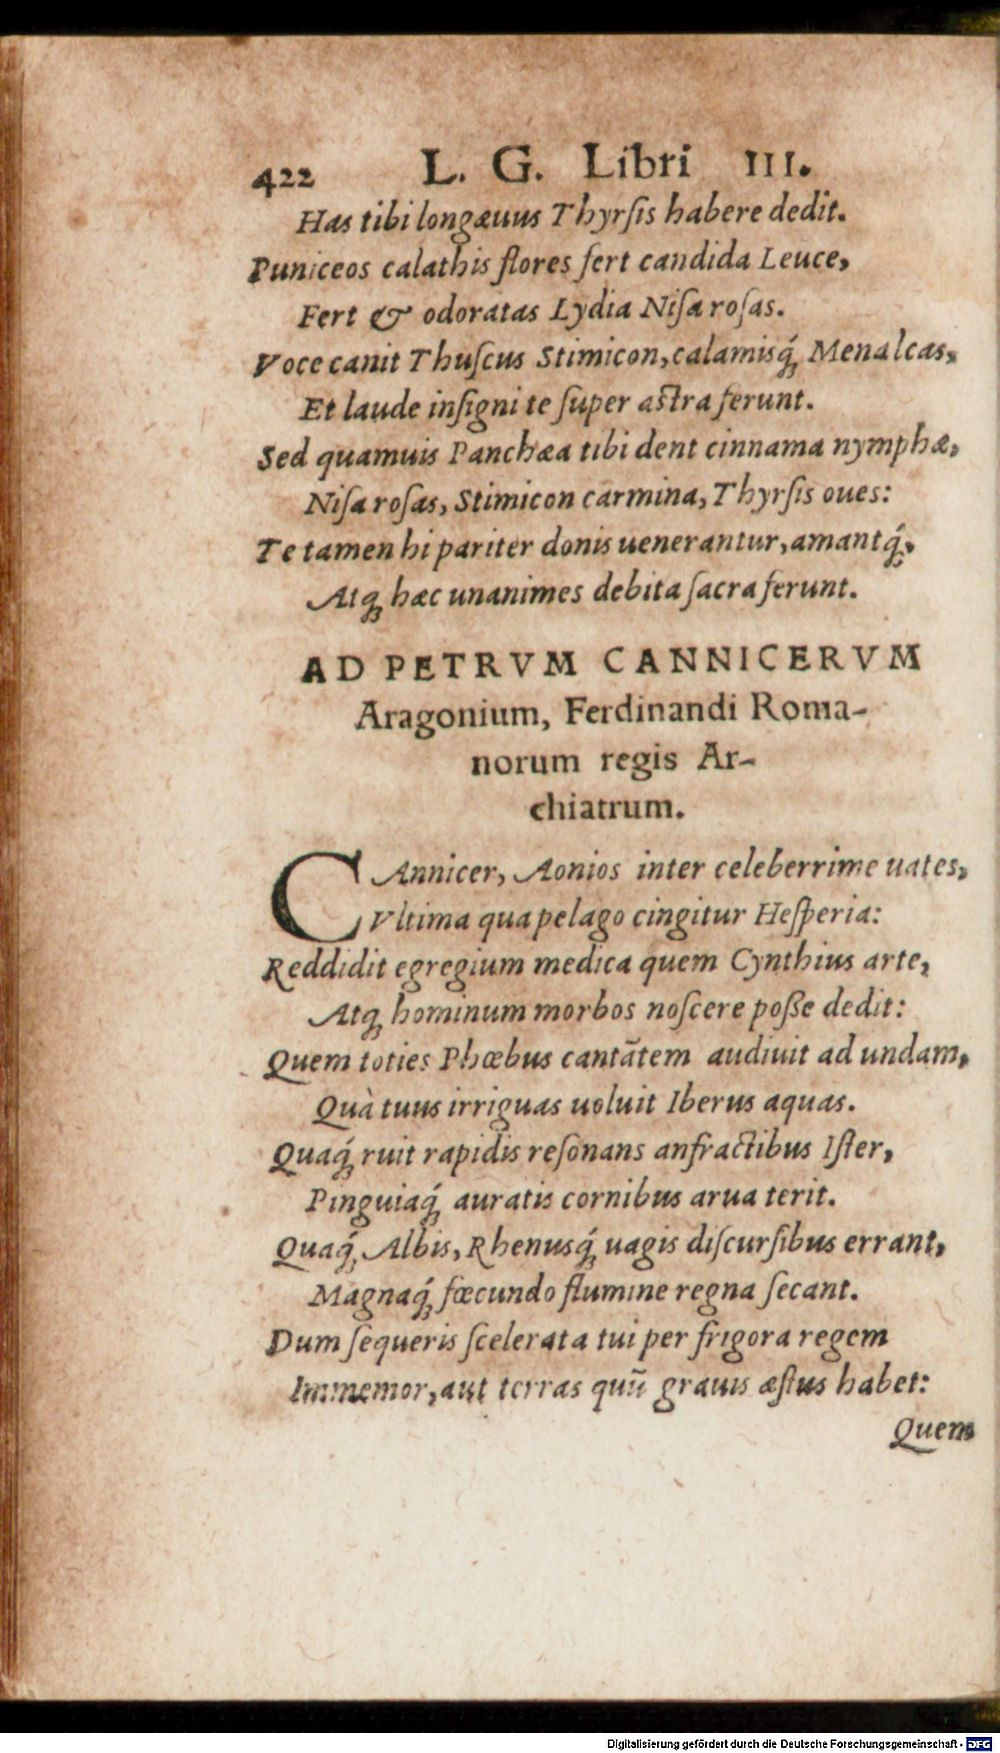 422 L. G. Libri III.
Has tibi longæuus Thyrſis habere dedit.
Puniceos calathis flores fert candida Leuce,
Fert & odoratas Lydia Niſa roſas.
Voce canit Thuſcus Stimicon, calamisq́; Menalcas,
Et laude inſigni te ſuper aſtra ferunt.
Sed quamuis Panchæa tibi dent cinnama nymphæ,
Niſa roſas, Stimicon carmina, Thyrſis oues:
Te tamen hi pariter donis uenerantur, amantq́;,
Atq; hæc unanimes debita ſacra ferunt.
AD PETRVM CANNICERVM
Aragonium, Ferdinandi Roma-
norum regis Ar-
chiatrum.
CAnnicer, Aonios inter celeberrime uates,
Vltima qua pelago cingitur Heſperia:
Reddidit egregium medica quem Cynthius arte,
Atq; hominum morbos noſcere poſſe dedit:
Quem toties Phœbus cantãtem audiuit ad undam,
Quà tuus irriguas uoluit Iberus aquas.
Quaq́; ruit rapidis reſonans anfractibus Iſter,
Pinguiaq́; auratis cornibus arua terit.
Quaq́;, Albis, Rhenusq́; uagis diſcurſibus errant,
Magnaq́; fœcundo flumine regna ſecant.
Dum ſequeris ſcelerata tui per frigora regem
Immemor, aut terras quũ grauis æſtus habet:
Quem
Digitalisierung gefördert durch die Deutsche Forschungsgemeinschaft - DFG